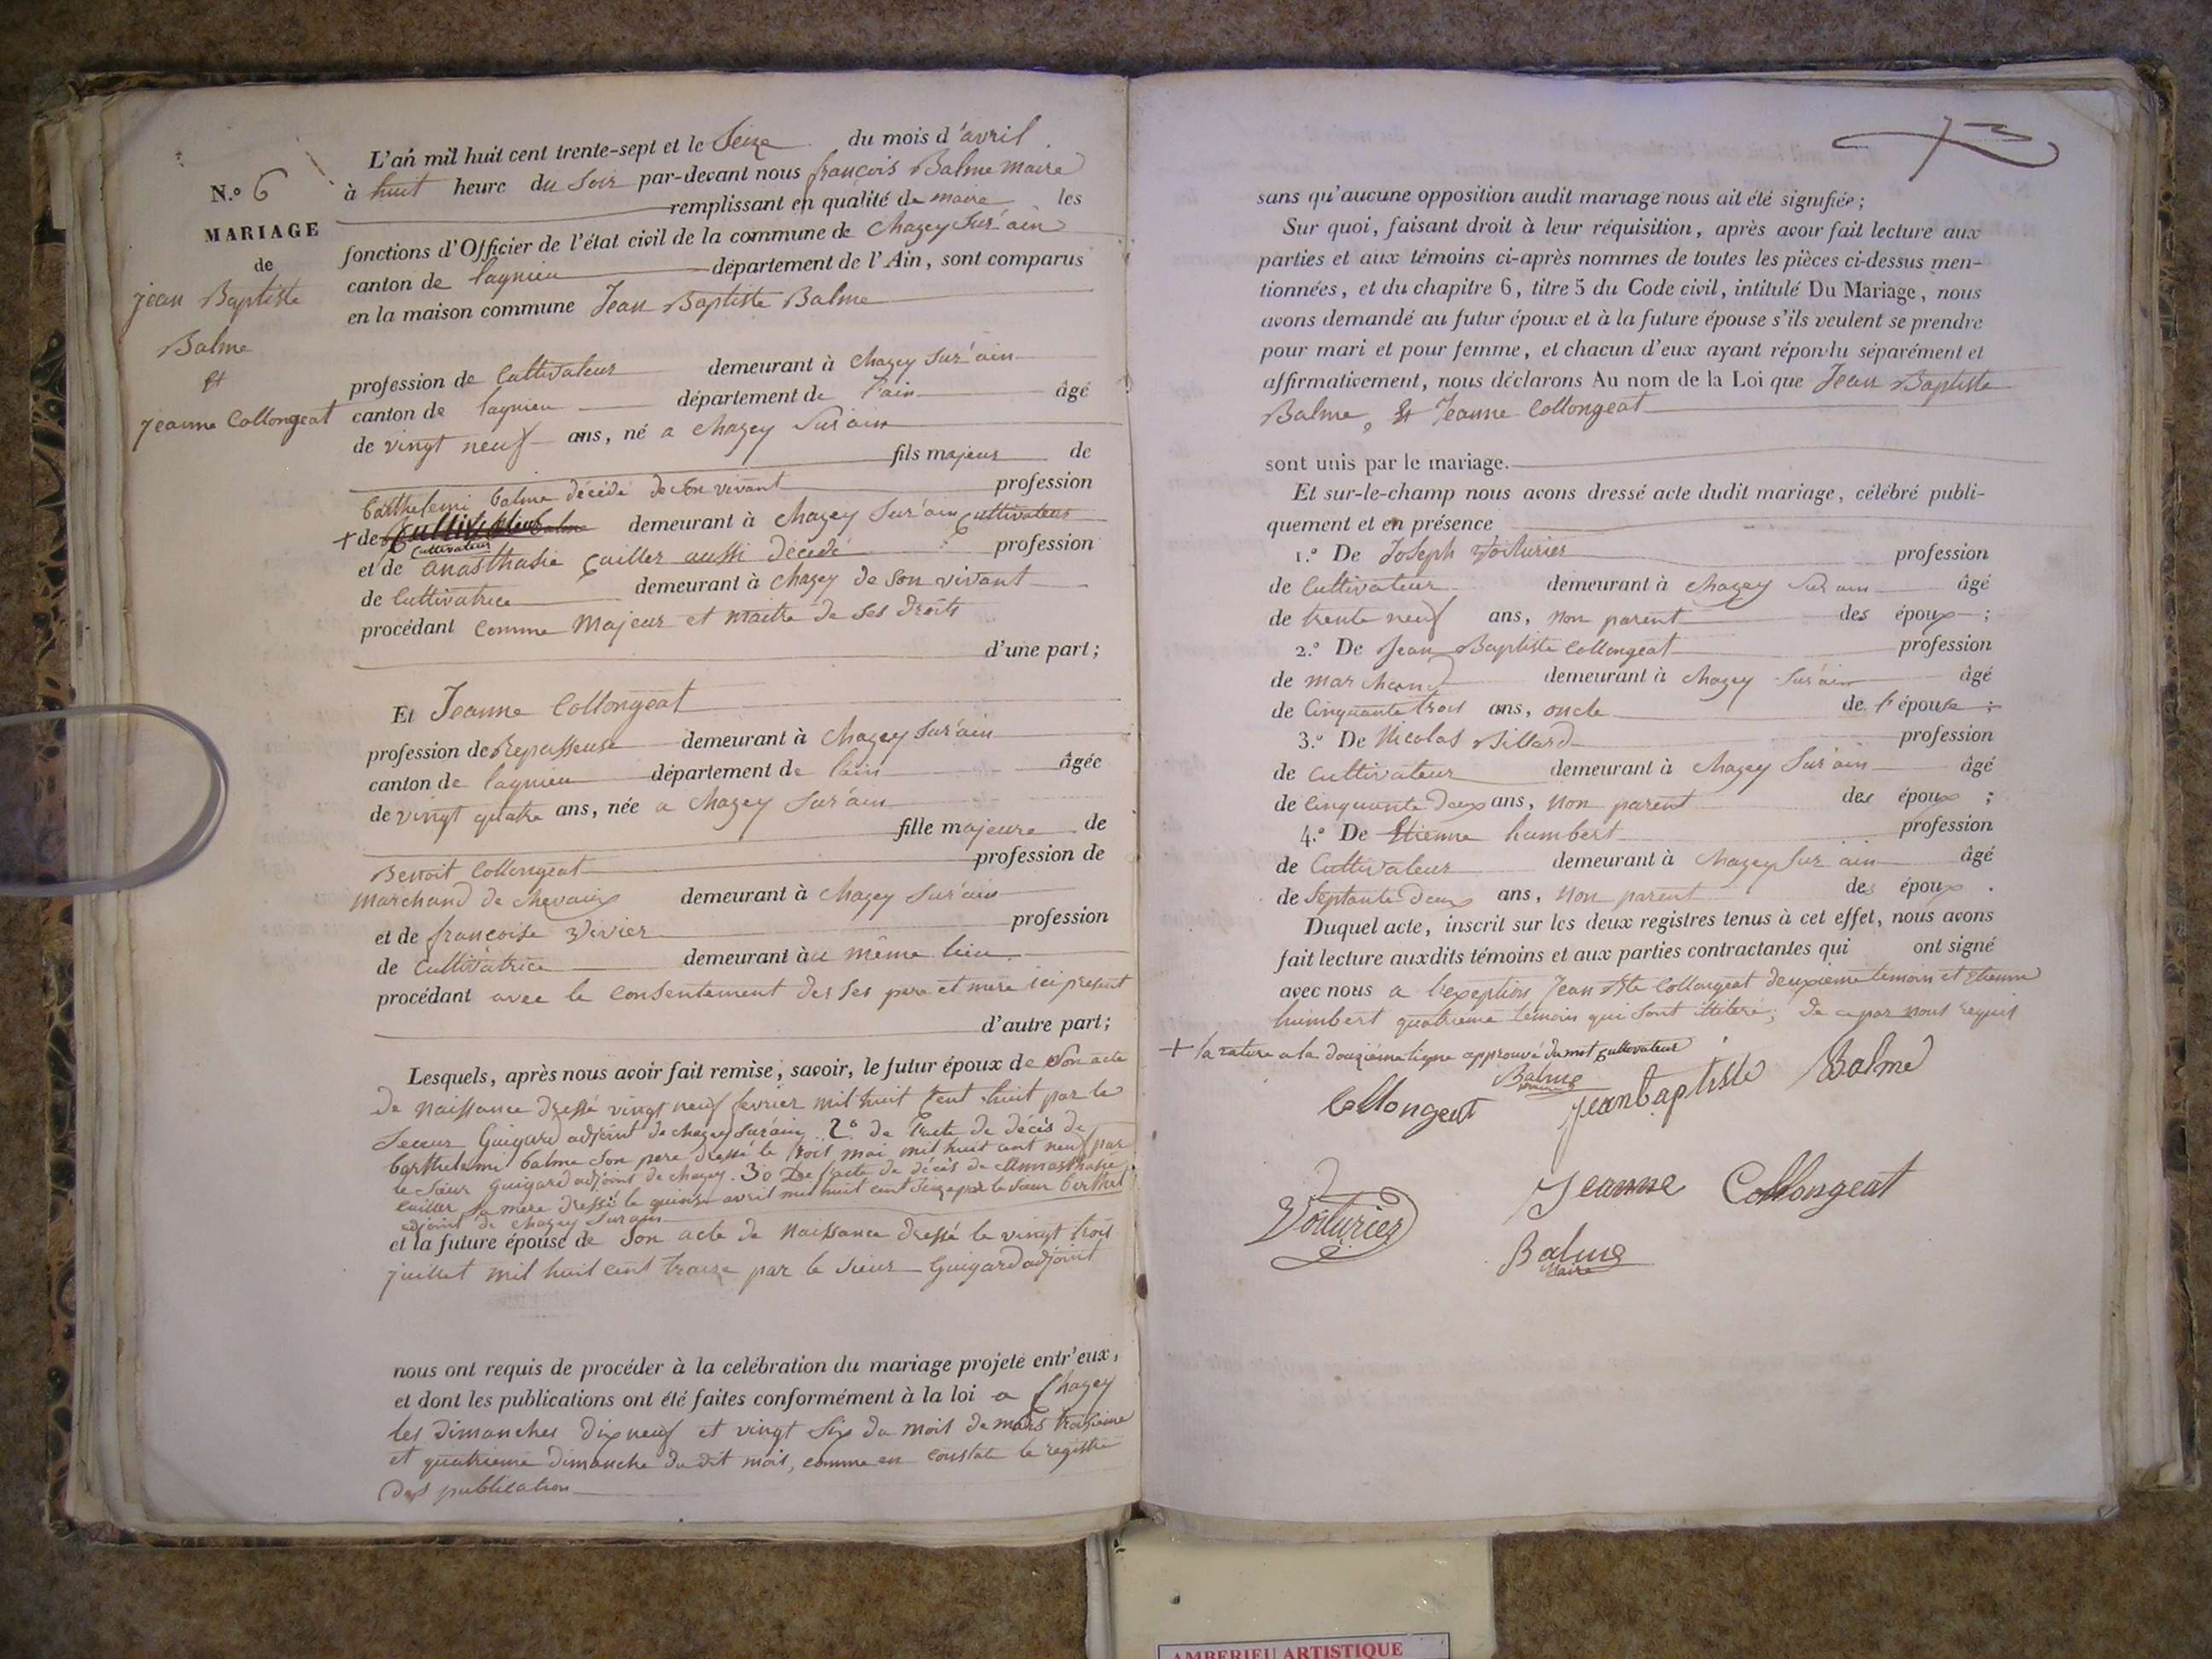 L'an mil huit cent trente-sept et le Seize du mois d'avril
N.º 6
à huit heure du Soir par-devant nous françois Balme maire
remplissant en qualité de maire les
MARIAGE
fonctions d'Officier de l'état civil de la commune de Chazey Sur ain
de
canton de lagnieu département de l'Ain, sont comparus
jean Baptiste
en la maison commune Jean Baptiste Balme
Balme
et
jeanne Collongeat
profession de Cultivateur demeurant à Chazey Sur'ain
canton de lagnieu département de l'ain âgé
de vingt neuf ans, né a Chazey Sur ain
fils majeur de
barthelemi balme décédé de son vivant profession
+ de demeurant à Chazey Sur'ain Cultivateur
Cultivateur
et de anasthasie Cailler aussi décédé profession
de Cultivatrice demeurant à Chazey de son vivant
procédant comme Majeur et maitre de ses droits
d'une part;
Et Jeanne Collongeat
profession de Repasseuse demeurant à Chazey Sur'ain
canton de lagnieu département de l'ain âgée
de vingt quatre ans, née a Chazey Sur'ain
fille majeure de
Benoit Collongeat profession de
Marchand de Chevaux demeurant à Chazey Sur'ain
et de françoise Vivier profession
de Cultivatrice demeurant àu même lieu
procédant avec le Consentement des ses pere et mere ici présent
d'autre part;
Lesquels, après nous avoir fait remise, savoir, le futur époux de Son acte
de naissance dressé vingt neuf fevrier mil huit Cent huit par le
Sieur Guigard adjoint de chazey Sur'ain 2º de l'acte de décès de
barthelemi balme Son pere dressé le trois mai mil huit cent neuf par
le Sieur Guigard adjoint de chazey. 3º De l'acte de décès de Annasthasie
Cailler Sa mère dressé le quinze avril mil huit cent Seize par le Sieur berthet
adjoint de Chazey Sur ain
et la future épouse de Son acte de Naissance dressé le vingt trois
juillet mil huit cent traize par le Sieur Guigard adjoint
nous ont requis de procéder à la celébration du mariage projeté entr'eux,
et dont les publications ont été faites conformément à la loi a Chazey
les dimanches dix neuf et vingt six du mois de mars troisieme
et quatrieme dimanche du dit mois, comme en constate le registre
des publication
sans qu'aucune opposition audit mariage nous ait été signifiée;
Sur quoi, faisant droit à leur réquisition, après avoir fait lecture aux
parties et aux témoins ci-après nommes de toutes les pièces ci-dessus men-
tionnées, et du chapitre 6, titre 5 du Code civil, intitulé Du Mariage, nous
avons demandé au futur époux et à la future épouse s'ils veulent se prendre
pour mari et pour femme, et chacun d'eux ayant répondu séparément et
affirmativement, nous déclarons Au nom de la Loi que Jean Baptiste
Balme, Et Jeanne Collongeat
sont unis par le mariage.
Et sur-le-champ nous avons dressé acte dudit mariage, célébré publi-
quement et en présence
1.º De Joseph Voiturier profession
de Cultivateur demeurant à Chazey Sur ain âgé
de trente neuf ans, non parent des époux ;
2.º De Jean Baptiste Collongeat profession
de marchand demeurant à Chazey Sur'ain âgé
de Cinquante trois ans, oncle de l'épouse ;
3.º De Nicolas Billard profession
de Cultivateur demeurant à Chazey Sur'ain âgé
de Cinquante deux ans, non parent des époux ;
4.º De Etienne humbert profession
de Cultivateur demeurant à Chazey Sur ain âgé
de Septante deux ans, non parent des époux .
Duquel acte, inscrit sur les deux registres tenus à cet effet, nous avons
fait lecture auxdits témoins et aux parties contractantes qui ont signé
avec nous a l'exception Jean Bte Collongeat deuxieme temoin et Etienne
humbert quatrieme temoin qui sont illiteré; de ce par nous requis
+ la rature a la douzième ligne approuvé du mot Cultivateur
Balme
Collongeat Jeanbaptiste Balme
Jeanne Collongeat
Voiturier
Balme
Maire
AMBERIEU ARTISTIQUE